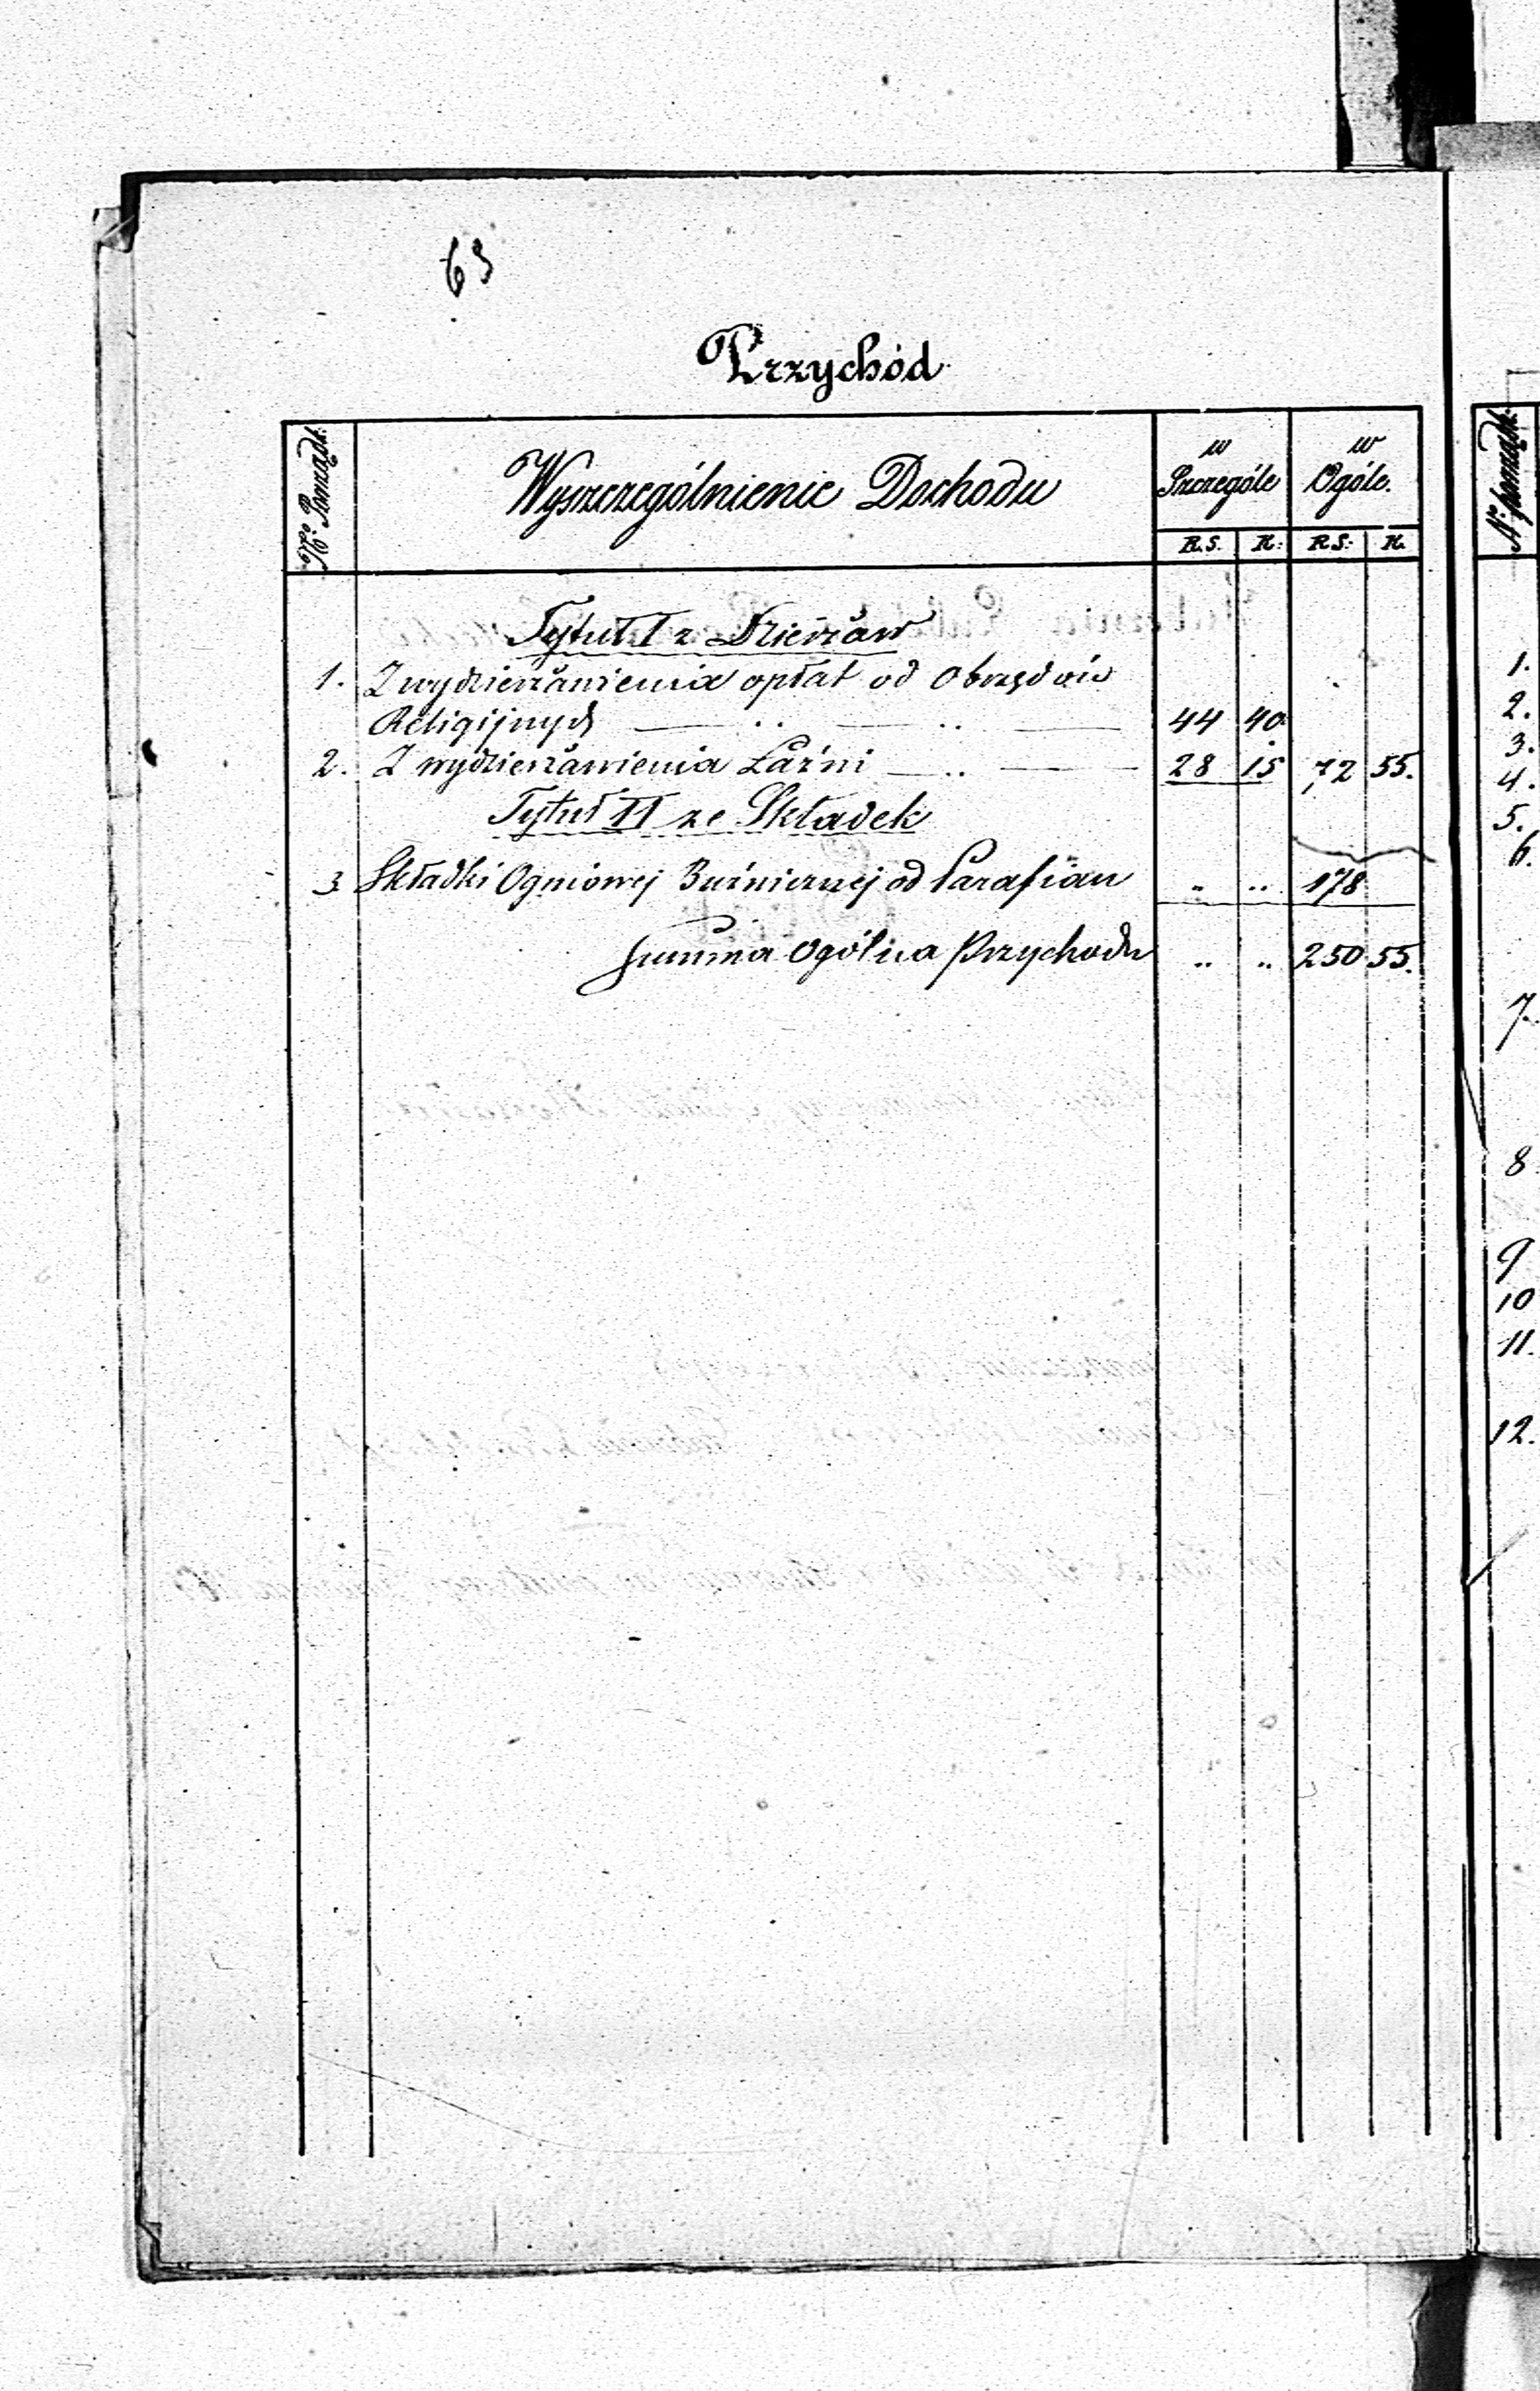 63
Przychód
No. Porządk. | Wyszczególnienie Dochodu | w Szczególe | w Ogóle.
R.S. | K: | R.S: | K.
Tytuł I z Dzierżaw
1. Z wydzierżawienia opłat od Obrzędów
Religijnych — .. — .. — 44 40
2. Z wydzierżawienia Łaźni — .. — 28 15 72 55.
Tytuł II ze Składek
3 Składki Ogniowej Buźnicznej od Parafian " .. 178
Summa Ogólna Przychodu .. .. 250 55.
No. porządk.
1.
2.
3.
4.
5.
6.
7.
8
9
10
11.
12.